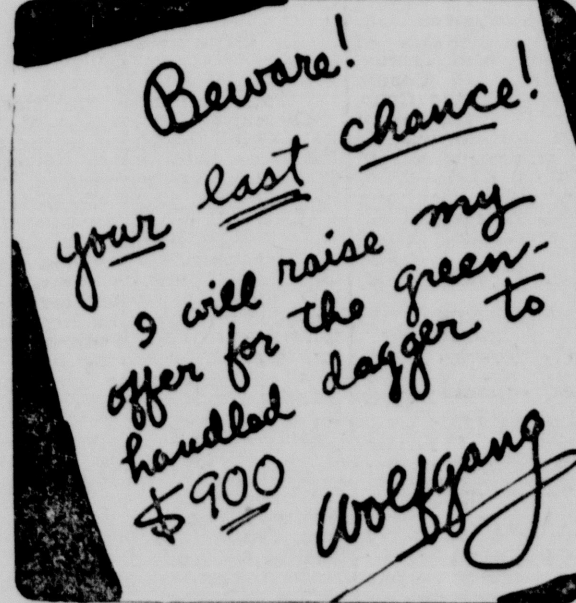 Beware!
your last chance!
I will raise my
offer for the green-
handled dagger to
$900
Wolfgang